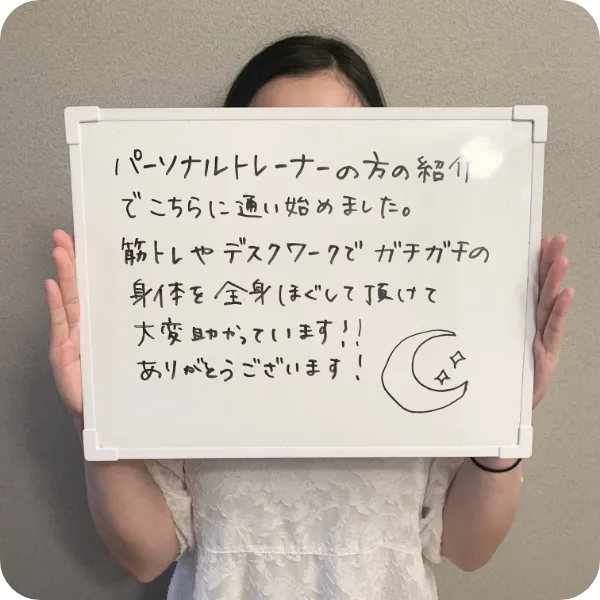 パーソナルトレーナーの方の紹介
でこちらに通い始めました。
筋トレやデスクワークでガチガチの
身体を全身ほぐして頂けて
大変助かっています!!
ありがとうございます!